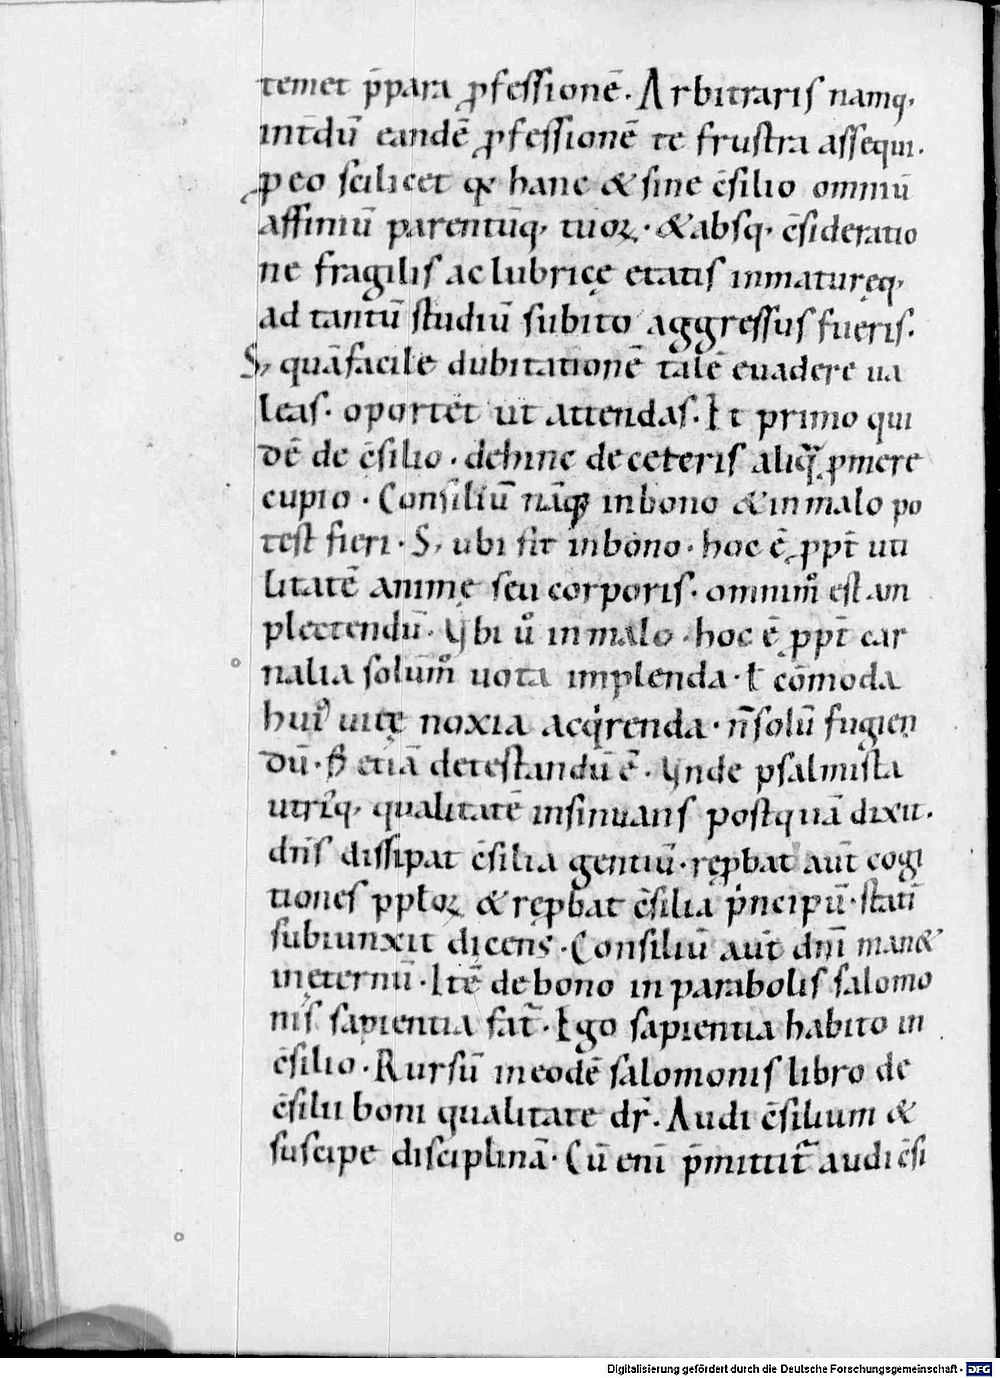 temet p̄para ꝓfessionē. Arbitraris namq,
int̄dū eandē ꝓfessionē te frustra assequi.
ꝓ eo scilicet qđ hanc & sine c̄silio omniū
affiniū parentūq, tuoꝝ. & absq, c̄sideratio
ne fragilis ac lubricę etatis inmaturęq,
ad tantū studiū subito aggressus fueris.
S; quā facile dubitationē talē euadere ua
leas. oportet ut attendas. Et primo qui
dē de c̄silio. dehinc de ceteris aliq̄ ꝓmere
cupio. Consiliū nāq; in bono & in malo po
test fieri. S; ubi fit in bono. hoc ē ꝓpt̄ uti
litatē animę seu corporis. omnim̊ est am
plectendū. Vbi ů in malo. hoc ē ꝓpt̄ car
nalia solūm̊ uota implenda. ł cōmoda
hui9 uitę noxia acq̇renda. n̄ solū fugien
dū. sꝫ etiā detestandū ē. Vnde psalmista
utrīq, qualitatē insinuans postquā dixit.
dn̄s dissipat c̄silia gentiū. reꝓbat aūt cogi
tiones pplōꝝ & reꝓbat c̄silia p̍ncipū. statī
subiunxit dicens. Consiliū aūt dn̄i man&
in ęternū. Itē de bono in parabolis salomo
nis sapientia fat̄. Ego sapientia habito in
c̄silio. Rursū in eodē salomonis libro de
c̄silii boni qualitate dr̄. Audi c̄silium &
suscipe disciplinā. Cū eni p̄mittit̄ audi c̄si
Digitalisierung gefördert durch die Deutsche Forschungsgemeinschaft - DFG